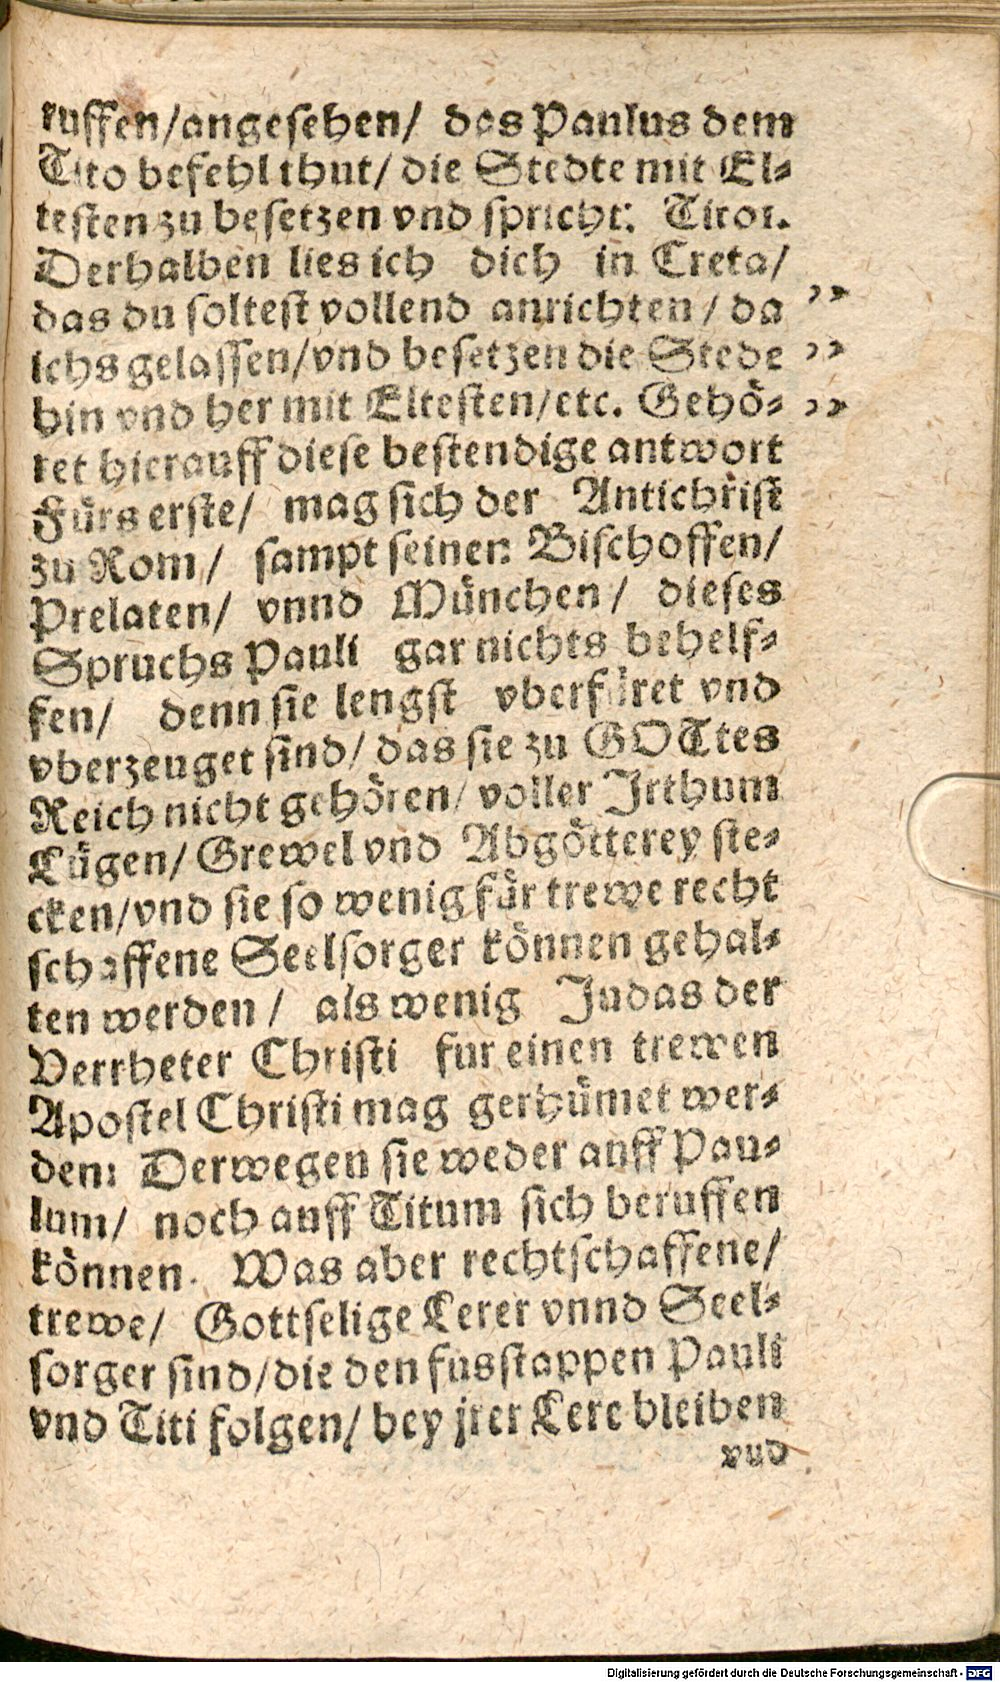 ruffen/angesehen/ das Paulus dem
Tito befehl thut/ die Stedte mit El-
testen zu besetzen vnd spricht: Titoı.
Derhalben lies ich dich in Creta/
das du soltest vollend anrichten / da „
ichs gelassen/vnd besetzen die Stede „
hin vnd her mit Eltesten/etc. Gehö- „
ret hierauff diese bestendige antwort
Fürs erste/ mag sich der Antichrist
zu Rom/ sampt seinen Bischoffen/
Prelaten/ vnnd München/ dieses
Spruchs Pauli gar nichts behelf-
fen/ denn sie lengst vberfüret vnd
vberzeuget sind/ das sie zu GOTtes
Reich nicht gehören/ voller Irthum
Lügen/ Grewel vnd Abgötterey ste-
cken/vnd sie so wenig für trewe recht
schaffene Seelsorger können gehal-
ten werden / als wenig Judas der
Verrheter Christi fur einen trewen
Apostel Christi mag gerhümet wer-
den: Derwegen sie weder auff Pau-
lum/ noch auff Titum sich beruffen
können. Was aber rechtschaffene/
trewe/ Gottselige Lerer vnnd Seel-
sorger sind/die den fusstappen Pauli
vnd Titi folgen/ bey jrer Lere bleiben
vud
Digitalisierung gefördert durch die Deutsche Forschungsgemeinschaft - DFG